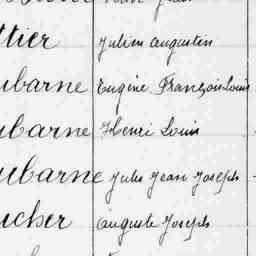 ttier Julien augustin
ubarne Eugène François Louis
ubarne Henri Louis
ubarne Jules Jean Joseph
ucher auguste Joseph